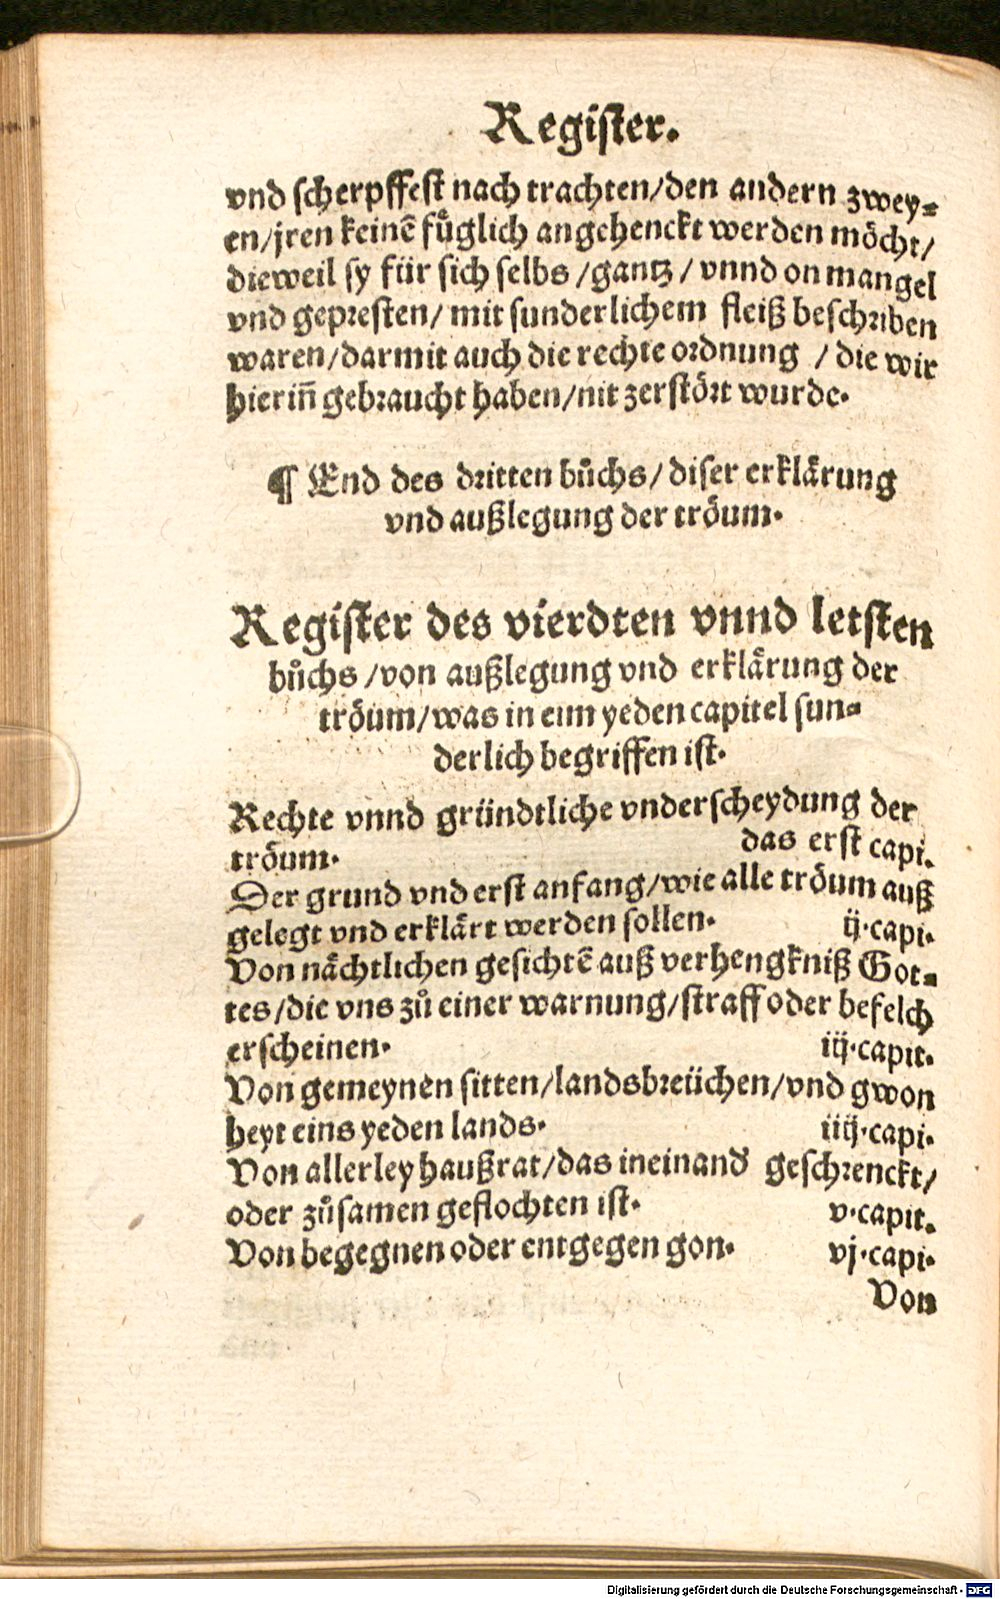 Register.
vnd scherpffest nach trachten/den andern zwey⸗
en/jren keinē fuͤglich angehenckt werden moͤcht/
dieweil sy für sich selbs /gantz / vnnd on mangel
vnd gepresten/ mit sunderlichem fleiß beschriben
waren/darmit auch die rechte ordnung / die wir
hierin̄ gebraucht haben/nit zerstoͤrt wurde.
¶ End des dritten bůchs/ diser erklaͤrung
vnd außlegung der troͤum.
Register des vierdten vnnd letsten
bůchs /von außlegung vnd erklaͤrung der
troͤum/was in eim yeden capitel sun⸗
derlich begriffen ist.
Rechte vnnd gründtliche vnderscheydung der
troͤum. das erst capi.
Der grund vnd erst anfang/wie alle troͤum auß
gelegt vnd erklaͤrt werden sollen. ij.capi.
Von naͤchtlichen gesichtē auß verhengkniß Got⸗
tes/die vns zů einer warnung/straff oder befelch
erscheinen. iij.capit.
Von gemeynen sitten/landsbreüchen/vnd gwon
heyt eins yeden lands. iiij.capi.
Von allerley haußrat/das ineinand̕ geschrenckt/
oder zůsamen geflochten ist. v.capit.
Von begegnen oder entgegen gon. vj.capi.
Von
Digitalisierung gefördert durch die Deutsche Forschungsgemeinschaft - DFG